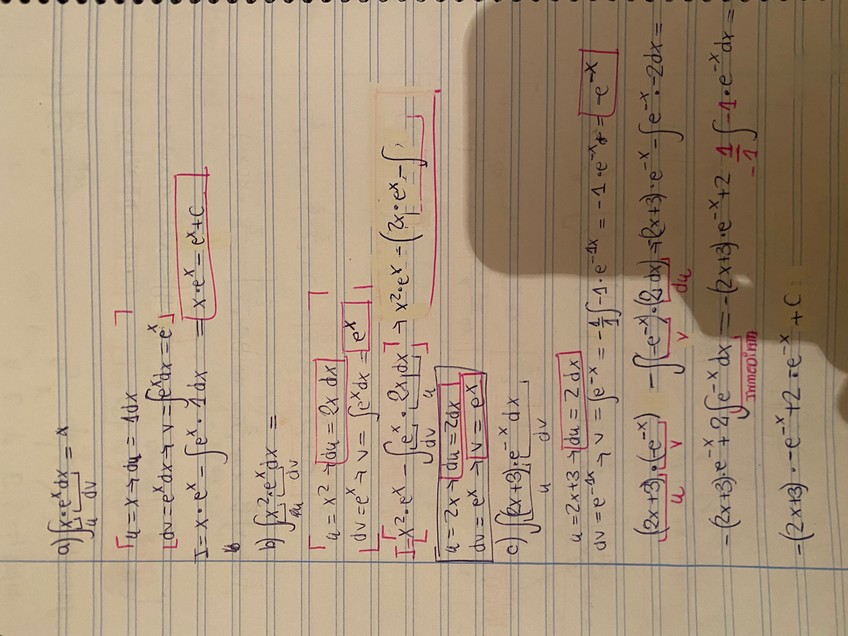 a) ∫x·eˣdx =
u dv
u = x → du = 1dx
dv = eˣdx → v = ∫eˣdx = eˣ
I = x·eˣ - ∫eˣ·1dx = x·eˣ - eˣ + C
b) ∫x²·eˣdx =
u dv
u = x² → du = 2x dx
dv = eˣ → v = ∫eˣdx = eˣ
I = x²·eˣ - ∫eˣ·2x dx → x²·eˣ = (2x·eˣ - ∫
dv u
u = 2x → du = 2dx
dv = eˣ → v = eˣ
c) ∫(2x+3)·e⁻ˣ dx
u dv
u = 2x+3 → du = 2dx
dv = e⁻¹ˣ → v = ∫e⁻ˣ = -1/1∫-1·e⁻¹ˣ = -1·e⁻ˣ = -e⁻ˣ
(2x+3)·(-e⁻ˣ) - ∫(-e⁻ˣ)·(2dx) = (2x+3)·e⁻ˣ - ∫e⁻ˣ·-2dx =
u v v du
-(2x+3)·e⁻ˣ + 2∫e⁻ˣdx = -(2x+3)·e⁻ˣ + 2 1/-1 ∫-1·e⁻ˣdx =
-(2x+3)·-e⁻ˣ + 2·e⁻ˣ + C